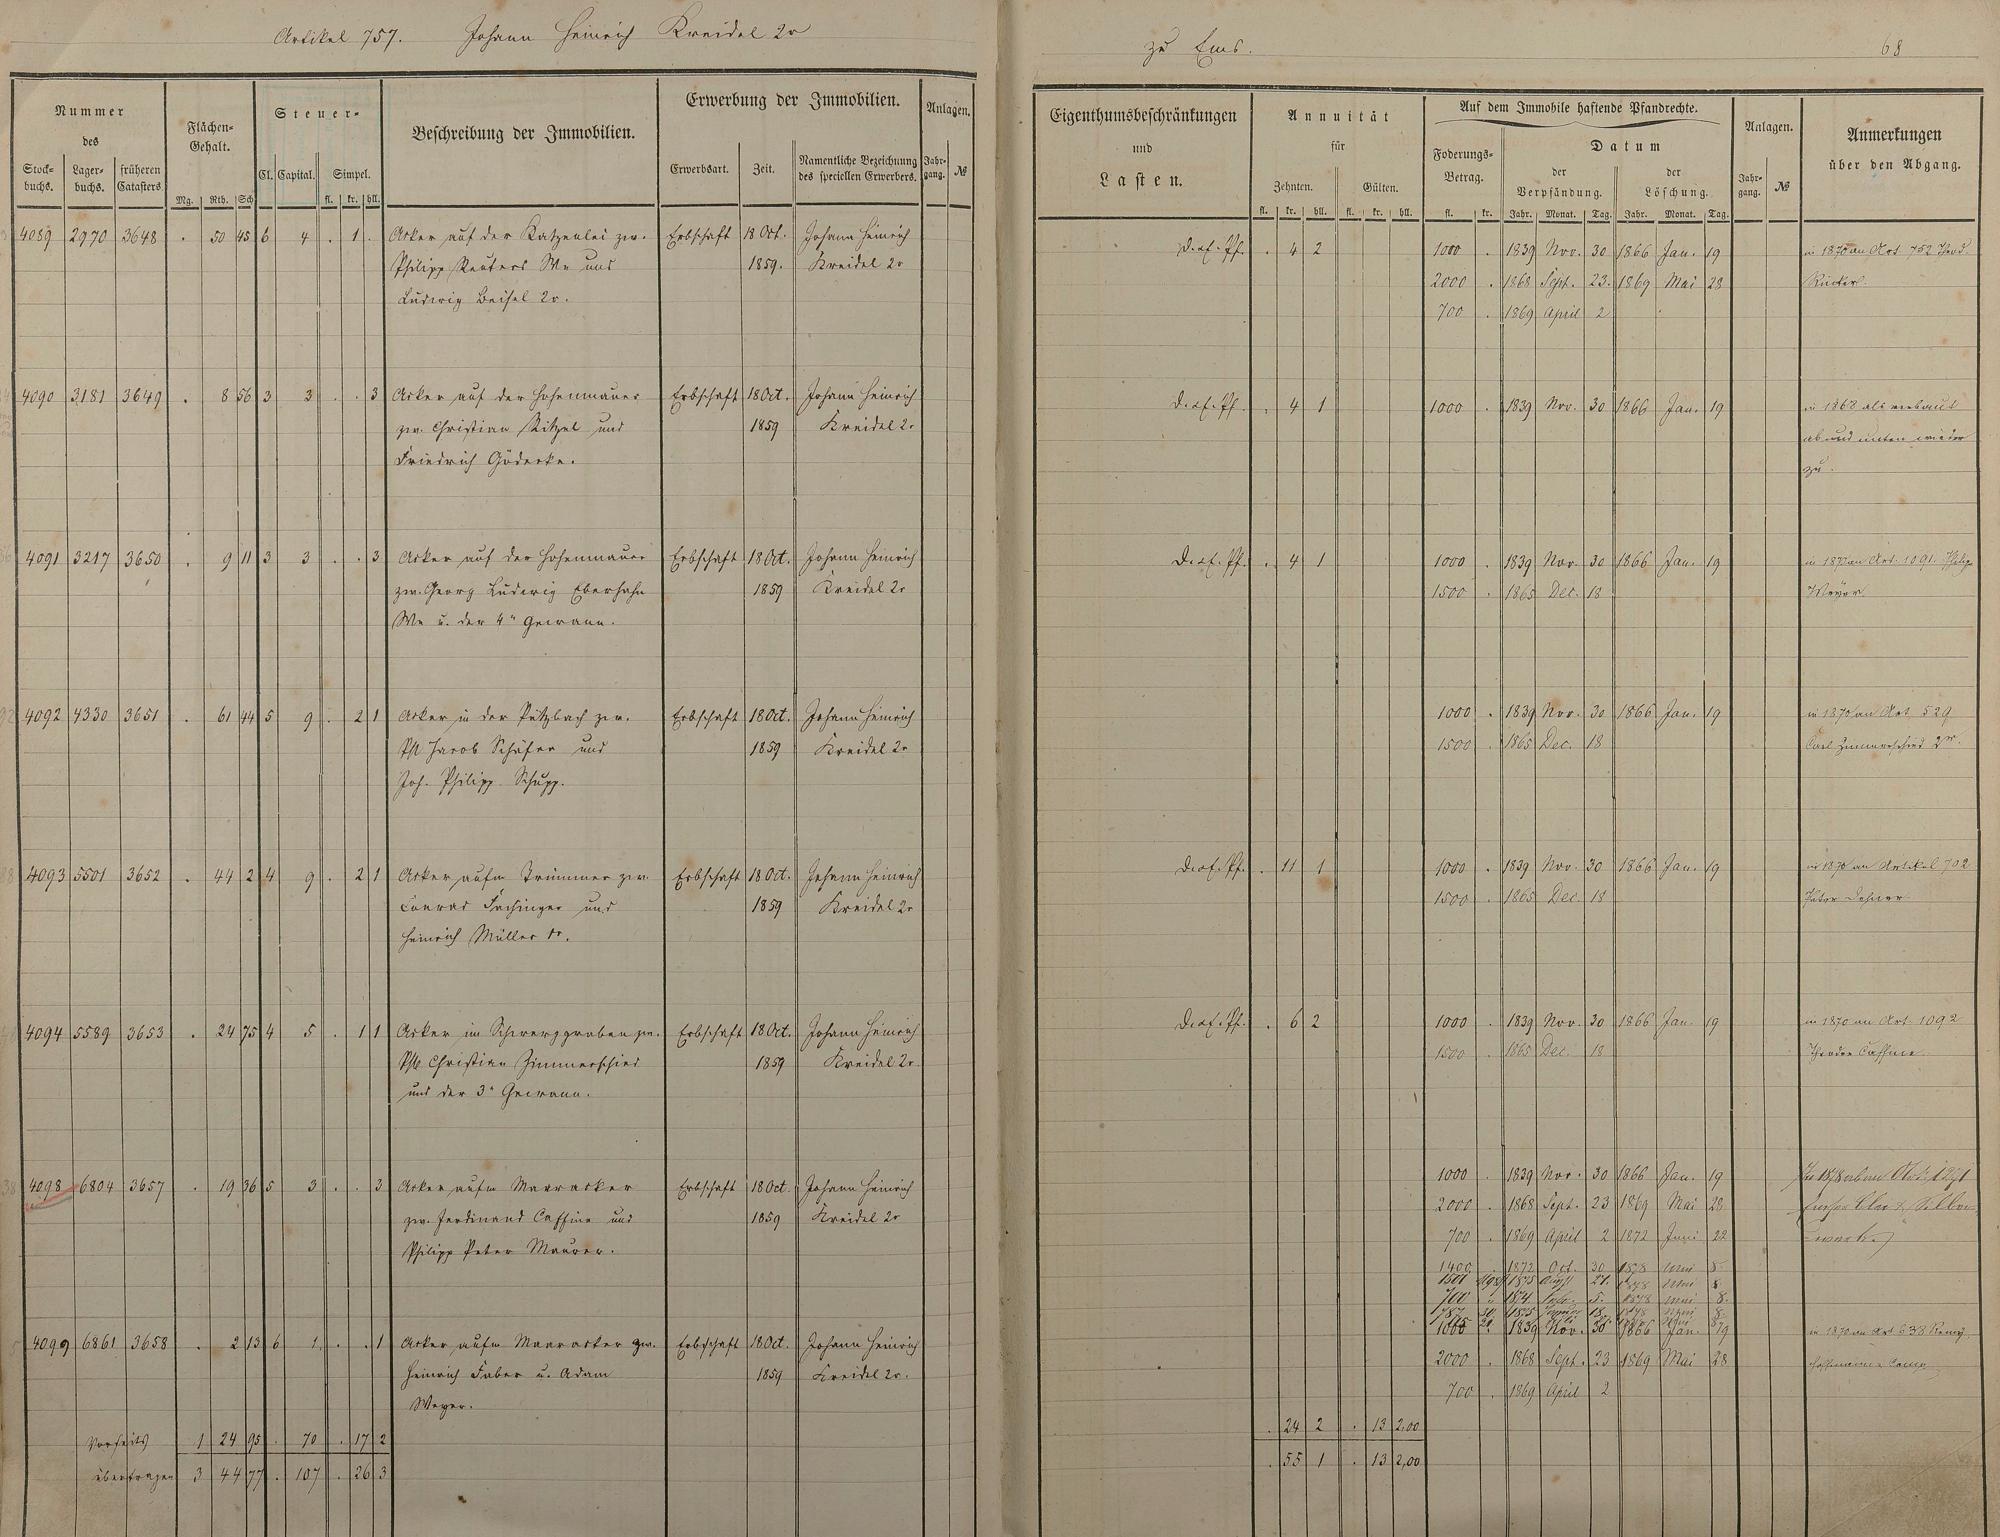 Artikel 757. Johann Heinrich Kreidel 2r
zu Ems. 68
Nummer des
Stock-buchs. Lager-buchs. früheren Catasters
Flächen-Gehalt.
Mg. Rth. Sch
Steuer-
Cl. Capital. Simpel.
fl. kr. hll.
Beschreibung der Immobilien.
Erwerbung der Immobilien.
Erwerbsart. Zeit. Namentliche Bezeichnung des speciellen Erwerbers.
Anlagen.
Jahr-gang. №
Eigenthumsbeschränkungen und Lasten.
Annuität für
Zehnten. Gülten.
fl. kr. hll. fl. kr. hll.
Auf dem Immobile haftende Pfandrechte.
Foderungs-Betrag. Datum
der Verpfändung. der Löschung.
fl. kr. Jahr. Monat. Tag. Jahr. Monat. Tag.
Anlagen.
Jahr-gang. №
Anmerkungen über den Abgang.
4089 2970 3648 . 50 45 6 4 . 1 . Acker auf der Katzenlei zw. Erbschaft 18 Oct. Johann Heinrich
Philipp Reuters We und 1859. Kreidel 2r
Ludwig Beisel 2r.
D. a. d. Pf. . 4 2 1000 . 1839 Nov. 30 1866 Jan. 19 in 1870 an Art 752 Theod.
2000 . 1868 Sept. 23. 1869 Mai 28
700 . 1869 April 2
4090 3181 3649 . 8 56 3 3 . . 3 Acker auf der Hohenmauer Erbschaft 18 Oct. Johann Heinrich
zw. Christian Bitzel und 1859 Kreidel 2r
Friedrich Gödecke.
D. a. d. Pf. . 4 1 1000 . 1839 Nov. 30 1866 Jan. 19 in 1868 als verbaut
ab und unten wieder
zu.
4091 3217 3650 . 9 11 3 3 . . 3 Acker auf der Hohenmauer Erbschaft 18 Oct. Johann Heinrich
zw. Georg Ludwig Eberhahn 1859 Kreidel 2r
We u. der 4n Gewann.
D. a. d. Pf. . 4 1 1000 . 1839 Nov. 30 1866 Jan. 19 in 1870 an Art. 1091. Philipp
1500 . 1865 Dec. 18 Meyer.
4092 4330 3651 . 61 44 5 9 . 2 1 Acker in der Pützbach zw. Erbschaft 18 Oct. Johann Heinrich
Jacob Schäfer und 1859 Kreidel 2r
Joh. Philipp Schupp.
1000 . 1839 Nov. 30 1866 Jan. 19 in 1870 an Art. 529
1500 . 1865 Dec. 18 Carl Zimmerschied 2r.
4093 5501 3652 . 44 2 4 9 . 2 1 Acker aufm Trümmer zw. Erbschaft 18 Oct. Johann Heinrich
Conrad Fachinger und 1859 Kreidel 2r
Heinrich Müller 1r.
D. a. d. Pf. . 11 1 1000 . 1839 Nov. 30 1866 Jan. 19 in 1870 an Artikel 702
1500 . 1865 Dec. 18 Peter
4094 5589 3653 . 24 75 4 5 . 1 1 Acker im Schwerzgraben zw. Erbschaft 18 Oct. Johann Heinrich
Christian Zimmerschied 1859 Kreidel 2r
und der 3n Gewann.
D. a. d. Pf. . 6 2 1000 . 1839 Nov. 30 1866 Jan. 19 in 1870 an Art. 1092
1500 . 1865 Dec. 18 Theodor Caffine.
4098 6804 3657 . 19 36 5 3 . . 3 Acker aufm Maaracker Erbschaft 18 Oct. Johann Heinrich
zw. Ferdinand Caffine und 1859 Kreidel 2r
Philipp Peter Maurer.
1000 . 1839 Nov. 30 1866 Jan. 19
2000 . 1868 Sept. 23 1869 Mai 28
700 . 1869 April 2 1872 Juni 22
1400 . 1872 Oct. 30 1878 Mai 8
4099 6861 3658 . 2 13 6 1 . . 1 Acker aufm Maaracker zw. Erbschaft 18 Oct. Johann Heinrich
Heinrich Faber u. Adam 1859 Kreidel 2r.
Weyer.
1000 1839 Nov. 30 1866 Jan. 19 in 1870 an Art 638
2000 . 1868 Sept. 23 1869 Mai 28
700 . 1869 April 2
Vorseits 1 24 95 . 70 . 17 2 . 24 2 . 13 2,00
übertragen 3 44 77 . 107 . 26 3 . 55 1 . 13 2,00